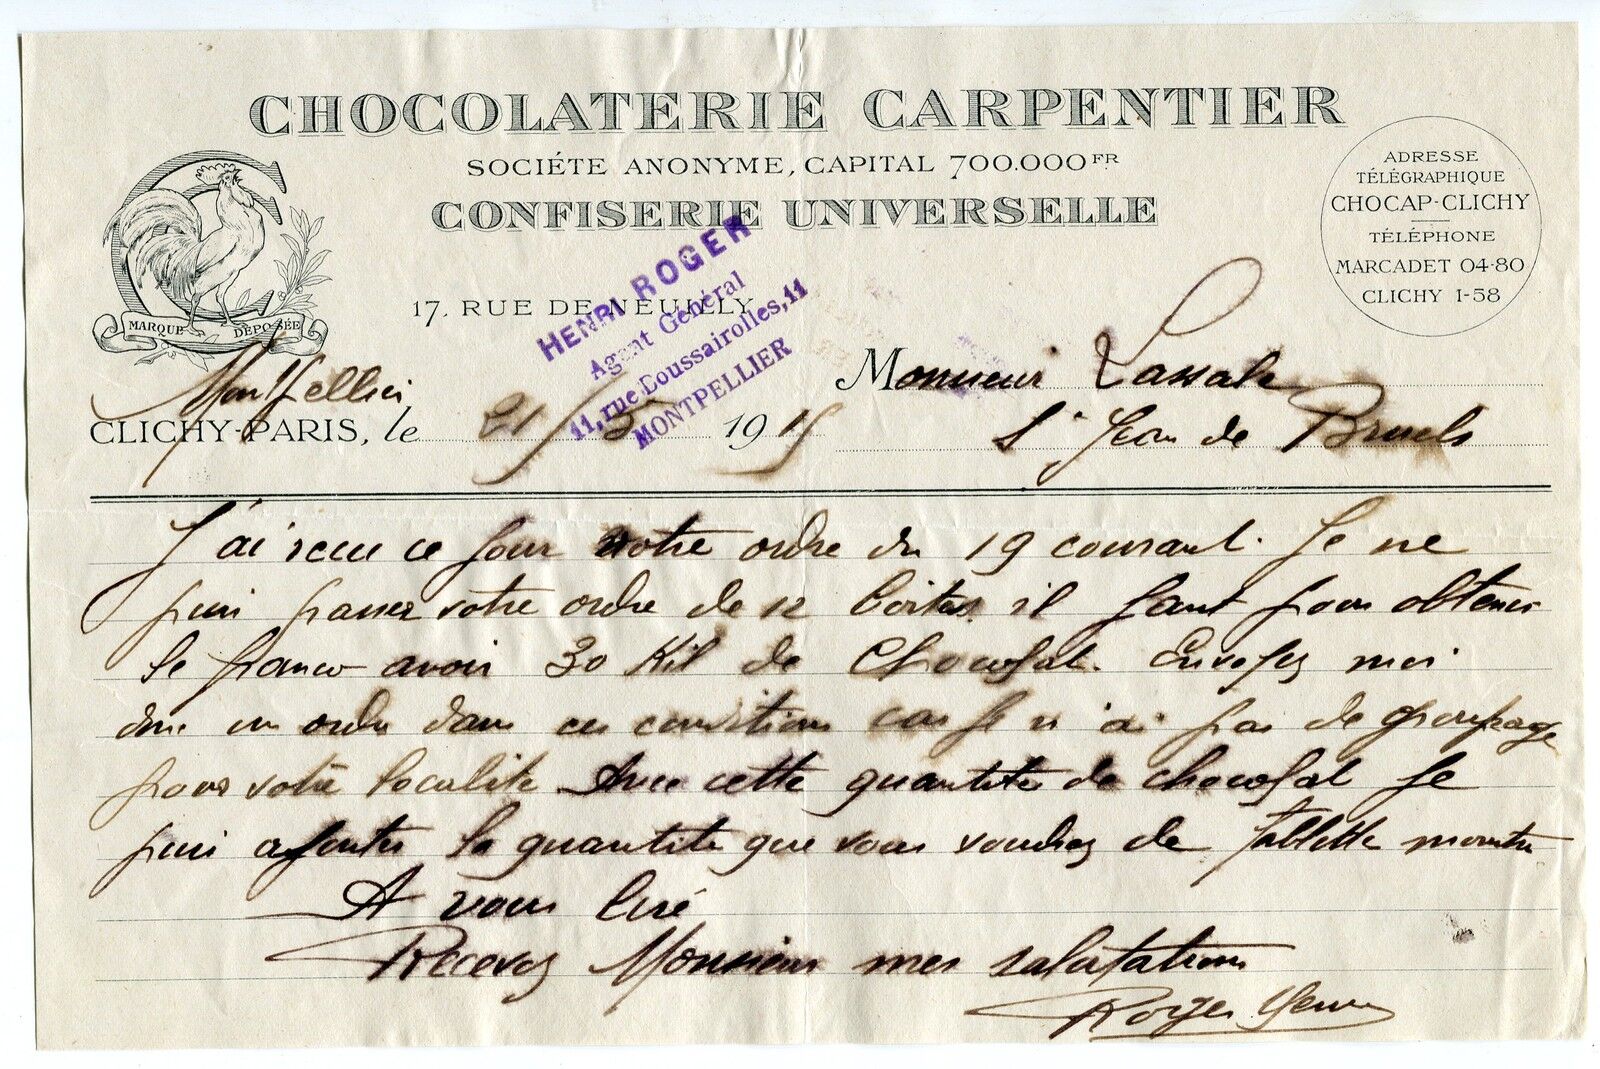 CHOCOLATERIE CARPENTIER
SOCIÉTE ANONYME, CAPITAL 700.000 FR
CONFISERIE UNIVERSELLE
17, RUE DE NEUILLY
MARQUE DÉPOSÉE
ADRESSE
TÉLÉGRAPHIQUE
CHOCAP-CLICHY
TÉLÉPHONE
MARCADET 04-80
CLICHY 1-58
HENRI ROGER
Agent Général
11, rue Boussairolles, 11
MONTPELLIER
Montpellier
CLICHY-PARIS, le 21/5 1915
Monsieur Lassale
St Jean de Bruels
J'ai recu ce jour votre ordre du 19 courant. Je ne
puis passer votre ordre de 12 boites il faut pour obtenir
le franco avoir 30 Kil de Chocolat. Envoyez moi
donc un ordre dans ces conditions car je n'ai pas de groupage
pour votre localité Avec cette quantité de chocolat je
puis ajouter la quantité que vous voudrez de tablette montre
A vous liré
Recevez Monsieur mes salutations
Roger Henri